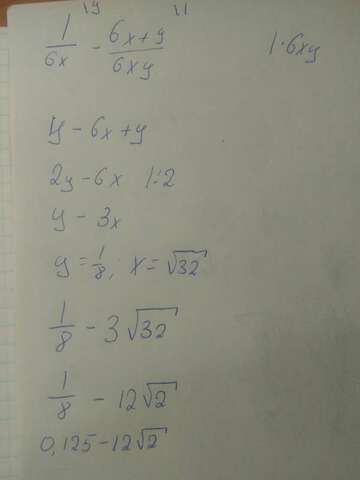 1/6x - 6x+y/6xy |·6xy
y - 6x + y
2y - 6x |:2
y - 3x
y = 1/8; x = √32
1/8 - 3√32
1/8 - 12√2
0,125 - 12√2